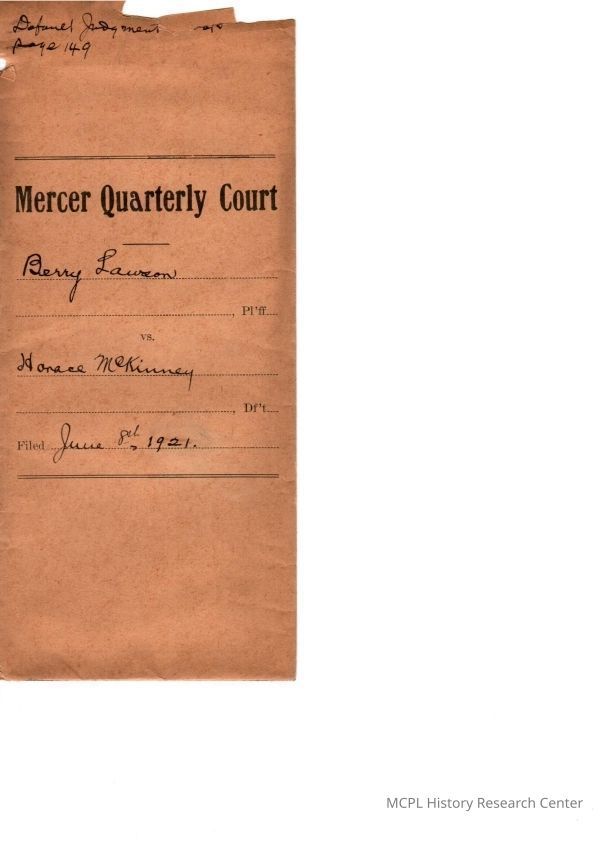 Defanct Judgment
Page 149
Mercer Quarterly Court
Berry Lawson
, Pl'ff.
vs.
Horace McKinney
, Df't.
Filed June 8th, 1921.
MCPL History Research Center